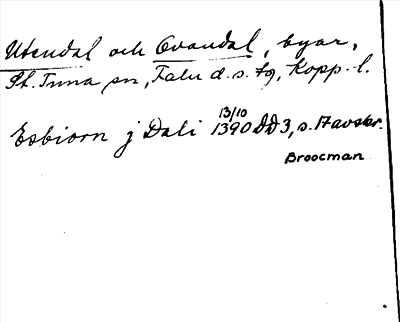 Utendal och Ovandal, byar,
St. Tuna sn, Falu d. s. tg, Kopp. l.
Esbiorn j Dali 13/10 1390 DD3, s. 17 avskr.
Broocman